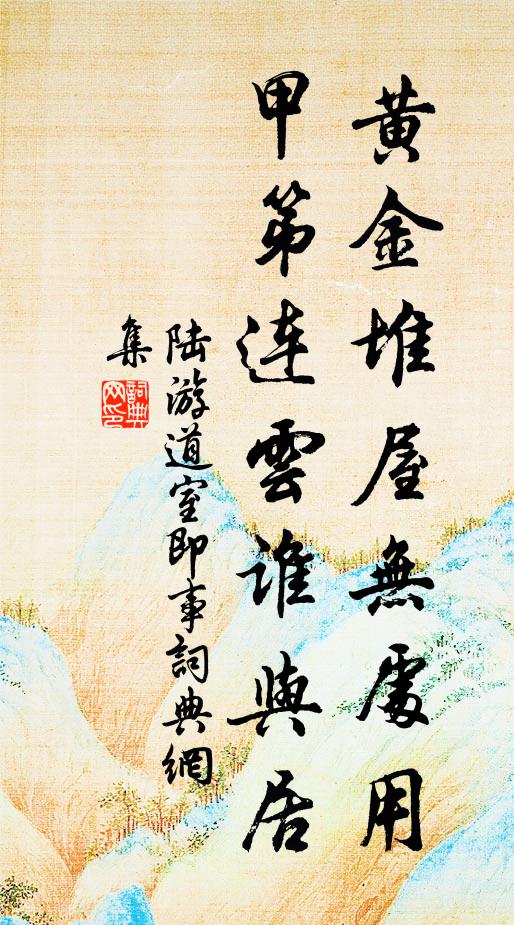 黃金堆屋無處用
甲第連雲誰與居
陸游道室即事詞典網
集
詞典
网印